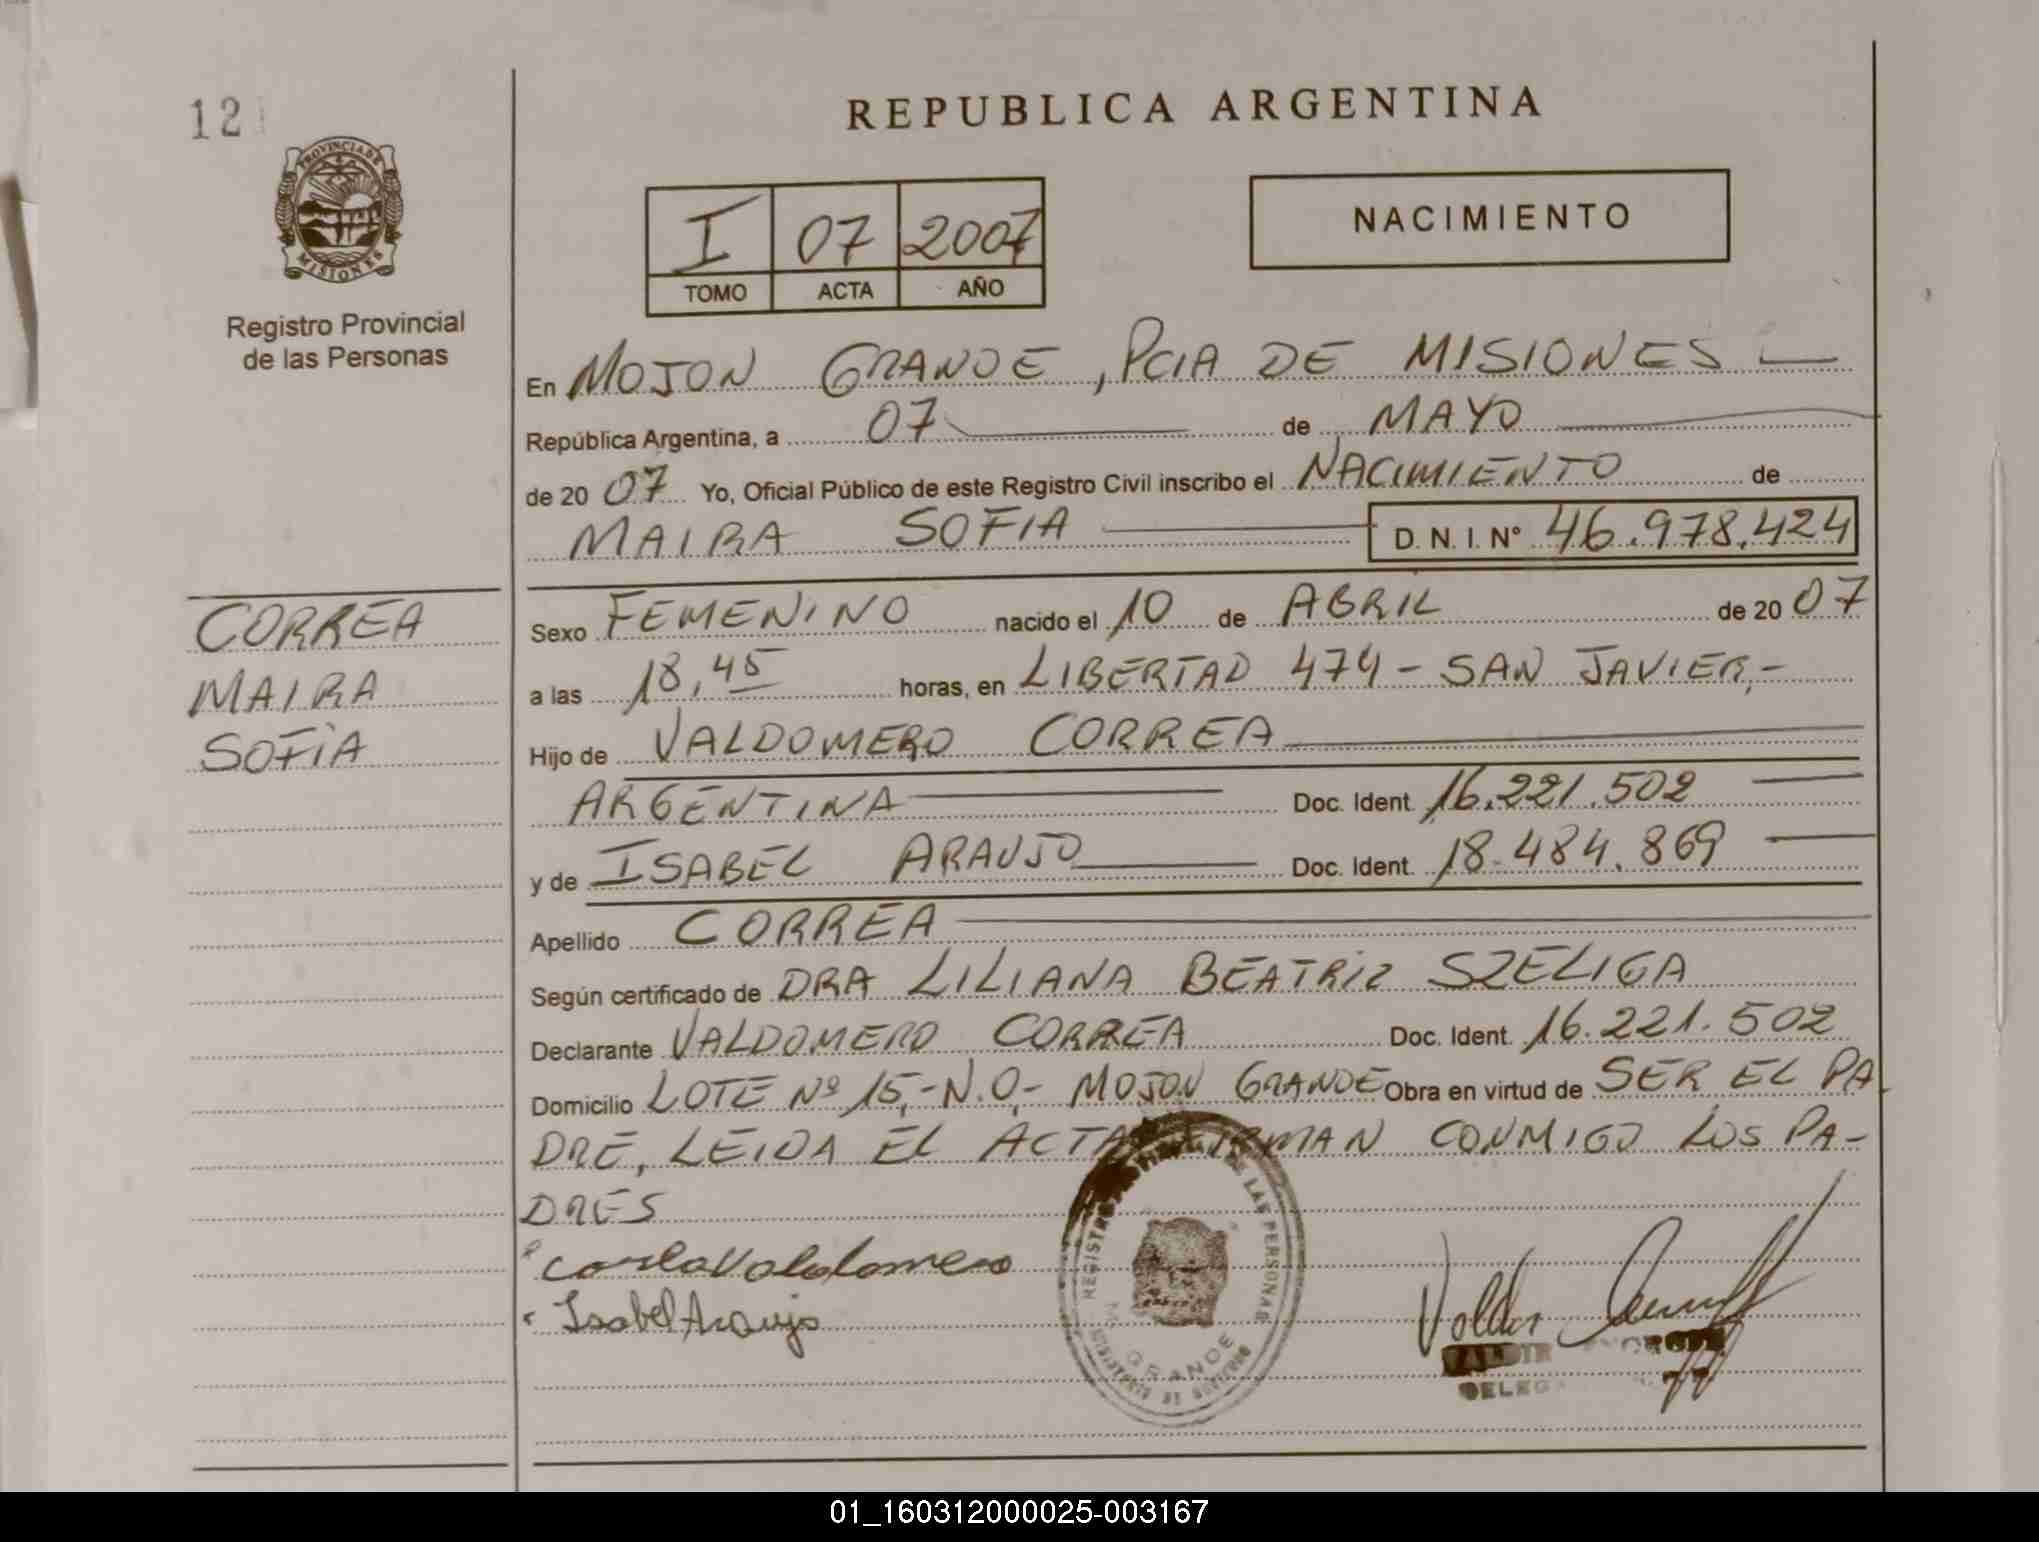 12
REPUBLICA ARGENTINA
PROVINCIA DE
MISIONES
Registro Provincial
de las Personas
I 07 2007
TOMO ACTA AÑO
NACIMIENTO
En MOJON GRANDE, PCIA DE MISIONES
República Argentina, a 07 de MAYO
de 20 07 Yo, Oficial Público de este Registro Civil inscribo el NACIMIENTO de
MAIRA SOFIA D.N.I. Nº 46.978.424
CORREA
MAIRA
SOFIA
Sexo FEMENINO nacido el 10 de ABRIL de 20 07
a las 18,45 horas, en LIBERTAD 474 - SAN JAVIER,-
Hijo de VALDOMERO CORREA
ARGENTINA Doc. Ident. 16.221.502
y de ISABEL ARAUJO Doc. Ident. 18.484.869
Apellido CORREA
Según certificado de DRA LILIANA BEATRIZ SZELIGA
Declarante VALDOMERO CORREA Doc. Ident. 16.221.502
Domicilio LOTE Nº 15,-N.O,- MOJON GRANDE Obra en virtud de SER EL PA
DRE, LEIDA EL ACTA FIRMAN CONMIGO LOS PA-
DRES
Valdomero
Isabel Araujo
REGISTRO DE LAS PERSONAS
GRANDE
MINISTERIO DE GOBIERNO
01_160312000025-003167